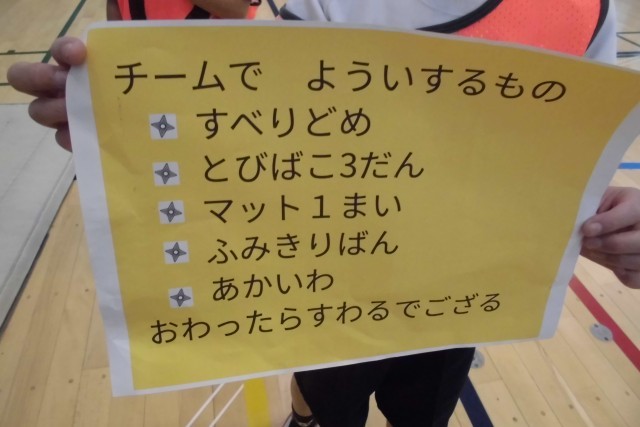 チームで　よういするもの
すべりどめ
とびばこ3だん
マット１まい
ふみきりばん
あかいわ
おわったらすわるでござる